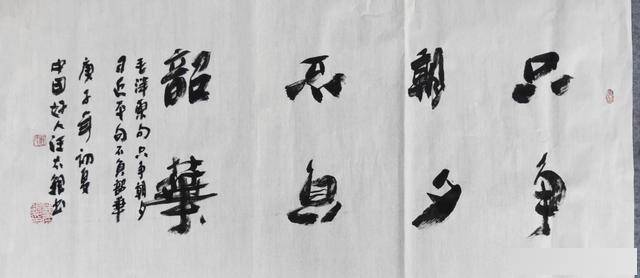 只争
朝夕
不负
韶华
毛泽东句只争朝夕
习近平句不负韶华
庚子年初夏
中国好人汪太银书